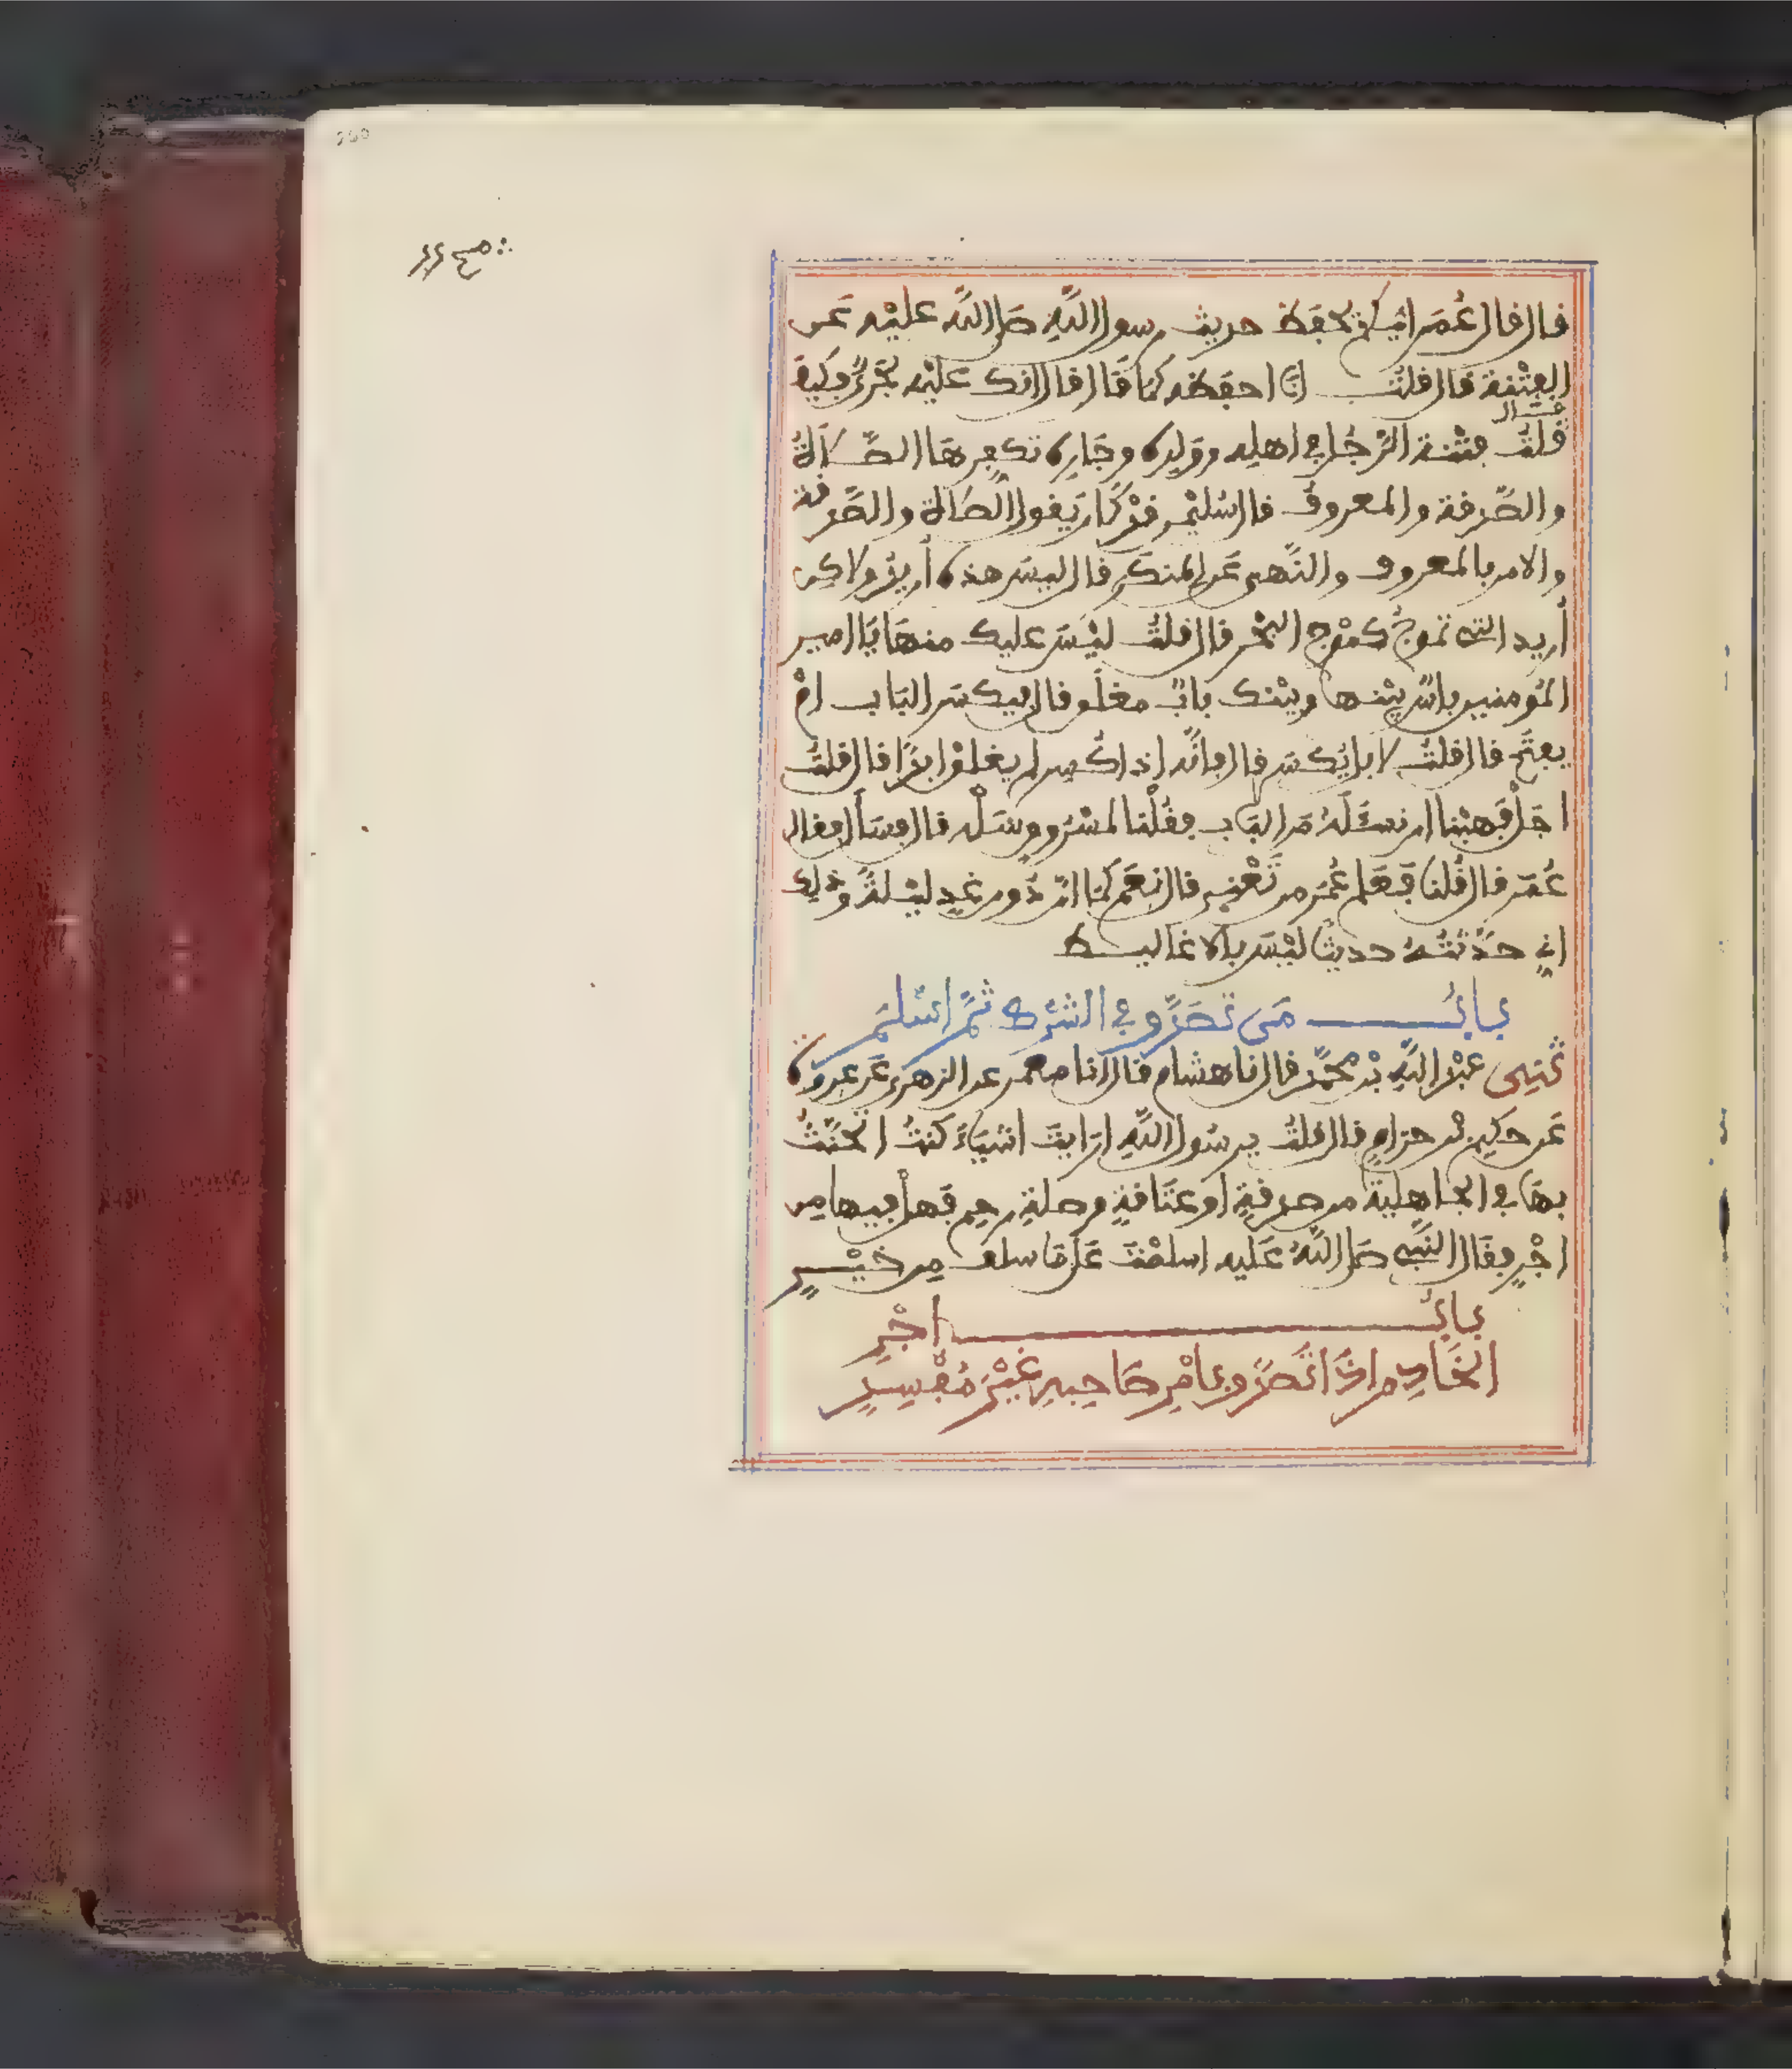 قال قال عُمَر ايكم يحفظ حديث رسول اللَّهِ صَلى اللَّه عليْه عَن
الفِتْنة قال قلتُ انا احفظه كمَا قَال قال انك عليْه لجَريٌ فكيفَ
قَال
قلتُ فتْنة الرَّجُل في اهلِه وولدِه وجَارِه تكفرهَا الصَّلاةُ
والصَّدقة والمعروفُ قال سُليْمن قدْ كانَ يَقول الصَّلاة والصَّدقة
والامر بالمعروف والنَّهى عَن المنكر قال ليسَ هذه أريدُ ولاكن
أريد التى تموجُ كموْج البحْر قال قلتُ ليْسَ عليك منهَا يَا امير
المُومنين باسٌ بيْنها وبيْنك بابٌ مغلَق قال فيكسَر البَاب امْ
يفتَح قال قلتُ لا بل يُكسَر قال فانَّه اذا كُسِر لم يغلقْ ابدًا قال قلتُ
اجَلْ فَهبْنا ان نسئَلَهُ مَن البَاب فقُلْنا لمسْرُوق سَلْه قال فسَأل فقال
عُمَر قال قُلنا فعَلم عُمَر من تَعْنى قال نعَم كمَا انَّ دُون غدٍ ليْلةً وذلك
انى حدَّثتُهُ حديثًا ليْسَ بالاغاليط
بابُ مَن تصَدَّق في الشرْك ثمَّ اسْلمَ
ثنى عبْد اللَّهِ بْن محمَّد قال نا هشام قال انا معْمر عن الزهرى عَن عروة
عَن حكيم بْن حزامٍ قال قلتُ يرسُول اللَّهِ ارَايتَ اشيَاءَ كنتُ اتحنَّثُ
بهَا في الجاهليَّة من صدقةٍ او عتَاقةٍ وصلةِ رحِم فهلْ فيها مِن
اجْرٍ فقَال النَّبى صَلى اللَّهُ عَليه اسلمْتَ عَلى مَا سلف مِن خيْرٍ
بابُ اجْرِ
الخَادِم اذَا تَصَدَّق بامْرِ صَاحِبهِ غيْرَ مُفْسِدٍ